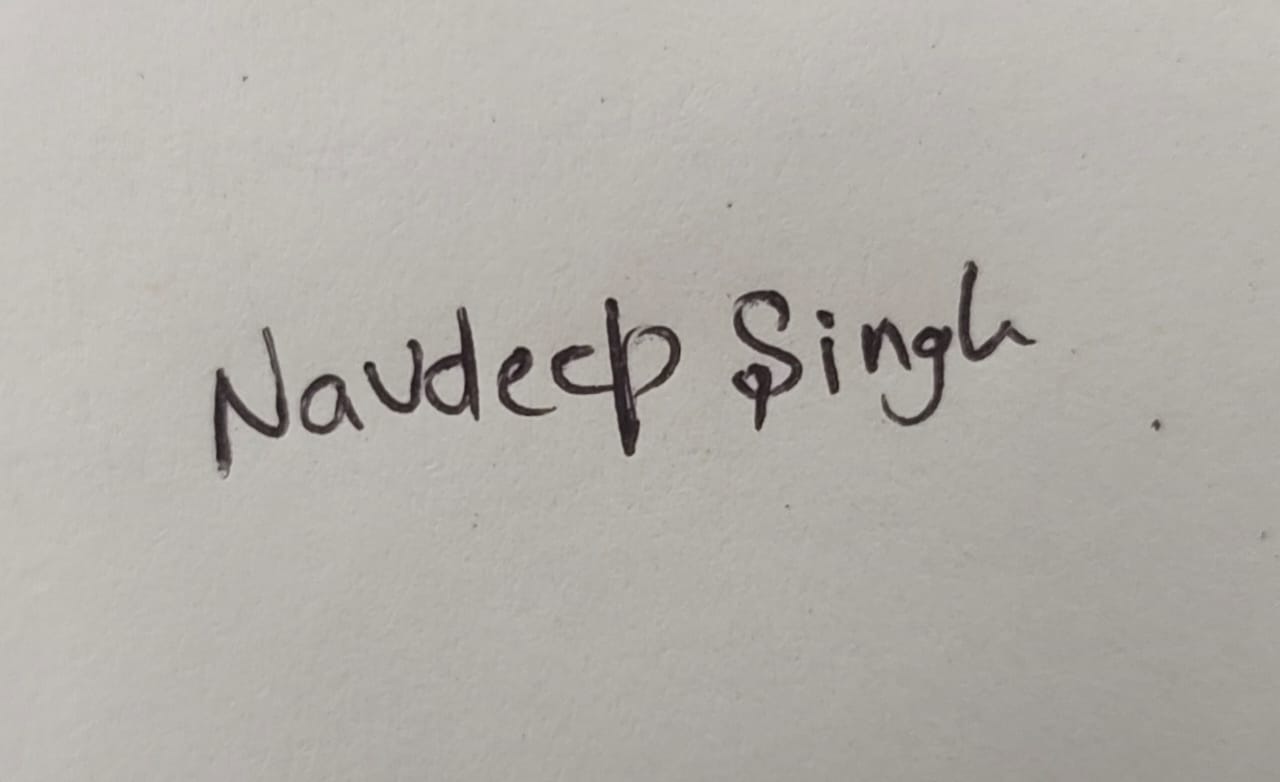 Navdeep Singh